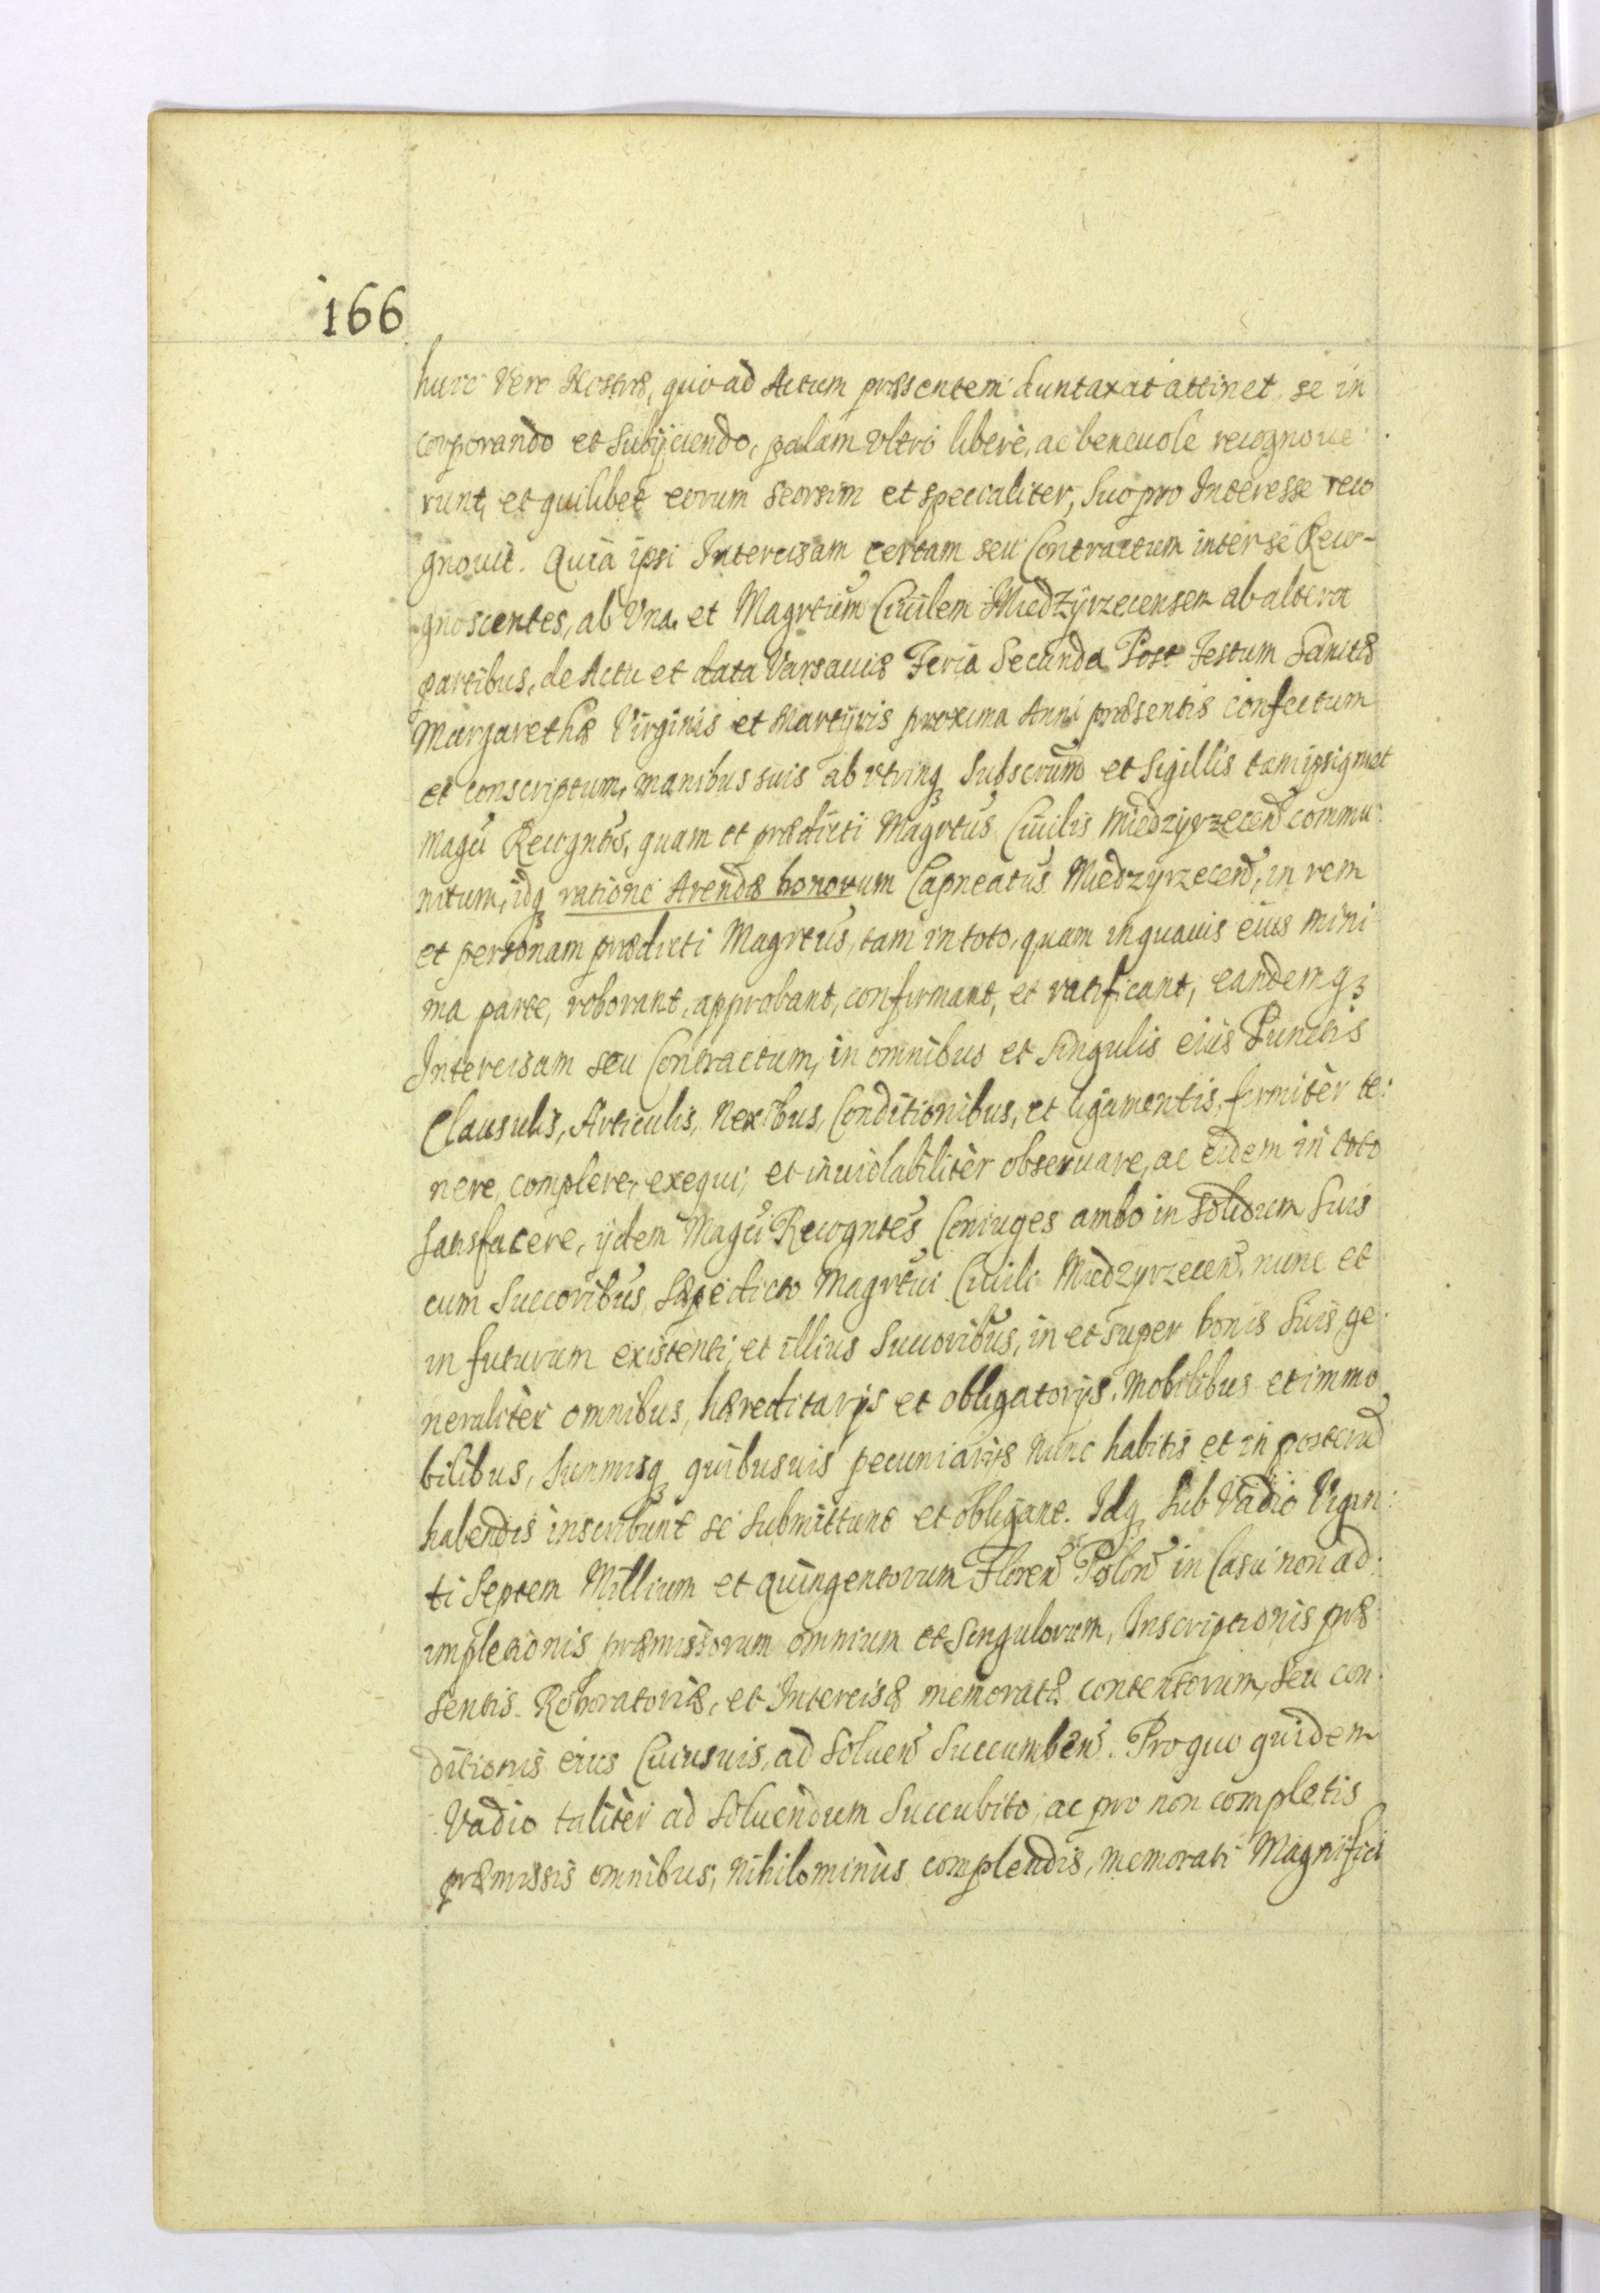 166
huic vero Nostræ, quo ad Actum præsentem duntaxat attinet, se in
corporando et subijciendo, palam vltro libere, ac beneuole recognoue
runt, et quilibet eorum seorsim et specialiter, suo pro Interesse reco
gnouit. Quia ipsi Intercisam certam seu Contractum inter se Reco-
gnoscentes, ab Vna, et Magrtum Ciuilem Miedzyrzecensem ab altera
partibus, de Actu et data Varsauiæ Feria Secunda Post Festum Sanctæ
Margarethæ Virginis et Martyris proxima Anni præsentis confectum
et conscriptum, manibus suis ab vtrinqꝫ subscrum et Sigillis tam ipsigmet
Magci Recogntes, quam et prædicti Magrtus Ciuilis Miedzyrzecen commu:
nitum, idqꝫ ratione Arendæ bonorum Capneatus Miedzyrzecen, in rem
et personam prædicti Magrtus, tam in toto, quam in quauis eius mini
ma parte, roborant, approbant, confirmant, et ratificant, eandemqꝫ
Intercisam seu Contractum, in omnibus et singulis eius Punctis
Clausulis, Articulis, Nexibus, Conditionibus, et ligamentis, firmiter te:
nere, complere, exequi, et inuiolabiliter obseruare, ac eidem in toto
satisfacere, ijdem Magci Recogntes Coniuges ambo in solidum suis
cum Succoribus, Sæpedicto Magrtui Ciuili Miedzyrzecen. nunc et
in futurum existenti, et illius Succoribus, in et super bonis suis ge
neraliter omnibus, hæreditarijs et obligatorijs, Mobilibus et immo
bilibus, Summisqꝫ quibusuis pecuniarijs nunc habitis et in posterum
habendis inscribunt se submittunt et obligant. Idqꝫ sub Vadio Vigin:
ti Septem Millium et quingentorum Floren Polon in Casu non ad:
impletionis præmissorum omnium et singulorum, Inscriptionis præ
sentis Roboratoriæ, et Intercisæ memoratæ contentorum, seu con
ditionis eius Cuiusuis, ad soluen Succumben. Pro quo quidem
Vadio taliter ad soluendum Succubito, ac pro non completis
præmissis omnibus, nihilominus complendis, memorati Magnifici